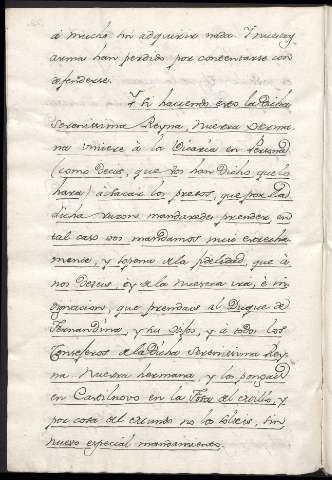 à mucha sin adquirir nada. Y muchas
armas han perdido por contentarse con
defenderse.
Y si haciendo esto la Dicha
Serenissima Reyna, Nuestra Herma
na viniere à la Vicaria en Persona
(como Decis, que vos han Dicho, que lo
hara) à sacar los presos, que por la
dicha razon mandaredes prender en
tal caso vos mandamos muy estrecha
mente, y so pena de la fidelidad, que à
nos Deveis, y de la nuestra ira, è in
dignacion, que prendais al Duque de
Fernandina, y su Hijos, y à todos los
Consejeros de la Dicha Serenissima Rey
na Nuestra hermana, y los pongais
en Castilnovo en la Fosa del millo, y
por cosa del mundo no los solteis, sin
nuevo especial mandamiento.